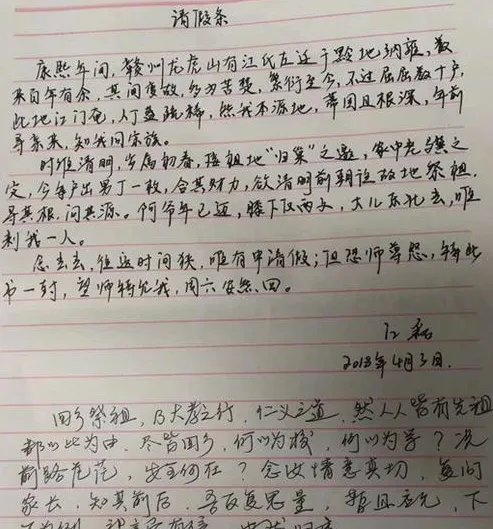 请假条
康熙年间，赣州龙虎山有江氏左迁于黔地纳雍，数
来百年有余，其间变故，多为苦楚，繁衍至今，不过屈屈数十户，
此地江门奄，人丁益疏稀，然我本源地，蒂固且根深，年前
寻亲来，知我同宗族。
时维清明，岁属初春，接祖地“归巢”之邀，家中老
定，今每户出男丁一枚，合其财力，欲清明前朝谊故地祭祖，
寻其根，问其源。何爷年已迈，膝下仅两丁，大儿东北去，唯
剩我一人。
念去去，往返时间狭，唯有申请假；但恐师尊怒，特此
书一封，望师特允我，周六安然回。
江磊
2018年4月3日.
回乡祭祖，乃大孝之行，仁义之道，然人人皆有先祖
都以此为由，尽皆回乡，何以为校，何以为学？况
前路茫茫，安可何在？念汝情意真切，复问
家长，知其前后，吾反复思量，暂且应允，下